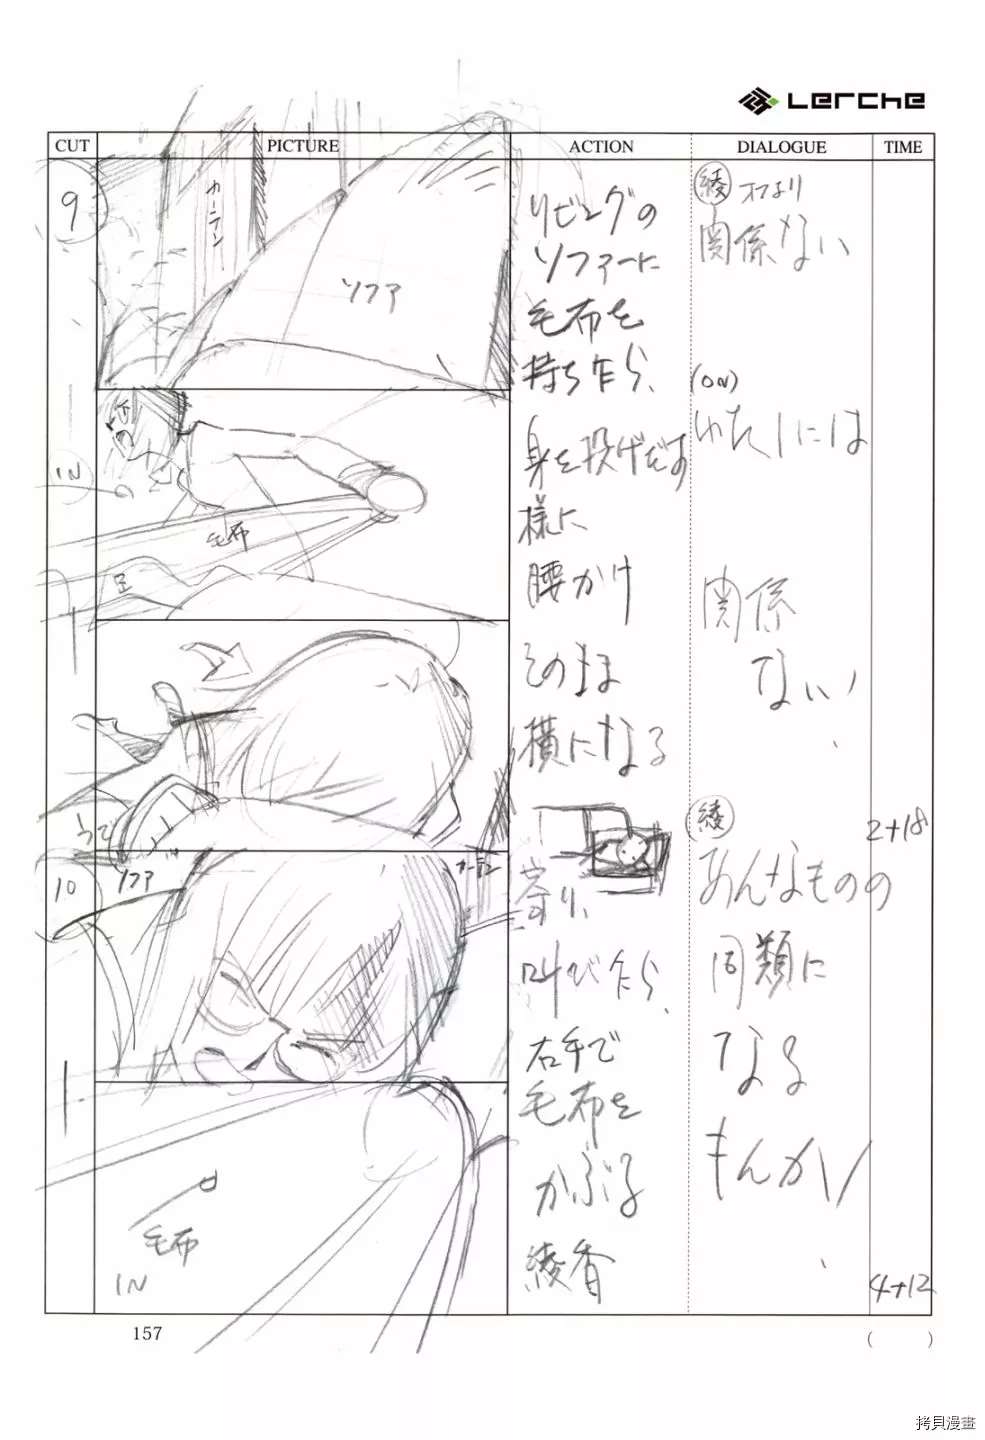 Lerche
CUT
PICTURE
ACTION
DIALOGUE
TIME
9
カーテン
ソファ
リビングの
ソファーに
毛布を
持ち乍ら、
身を投げだす
様に
腰かけ
そのまま
横になる
綾 オフより
関係ない
(ON)
わたしには
関係
ない
IN
毛布
足
うで
2+18
10
ソファ
カーテン
寄り、
叫び乍ら、
右手で
毛布を
かぶる
綾香
綾
あんなものの
同類に
なる
もんか
毛布
IN
4+12
157
( )
拷貝漫畫